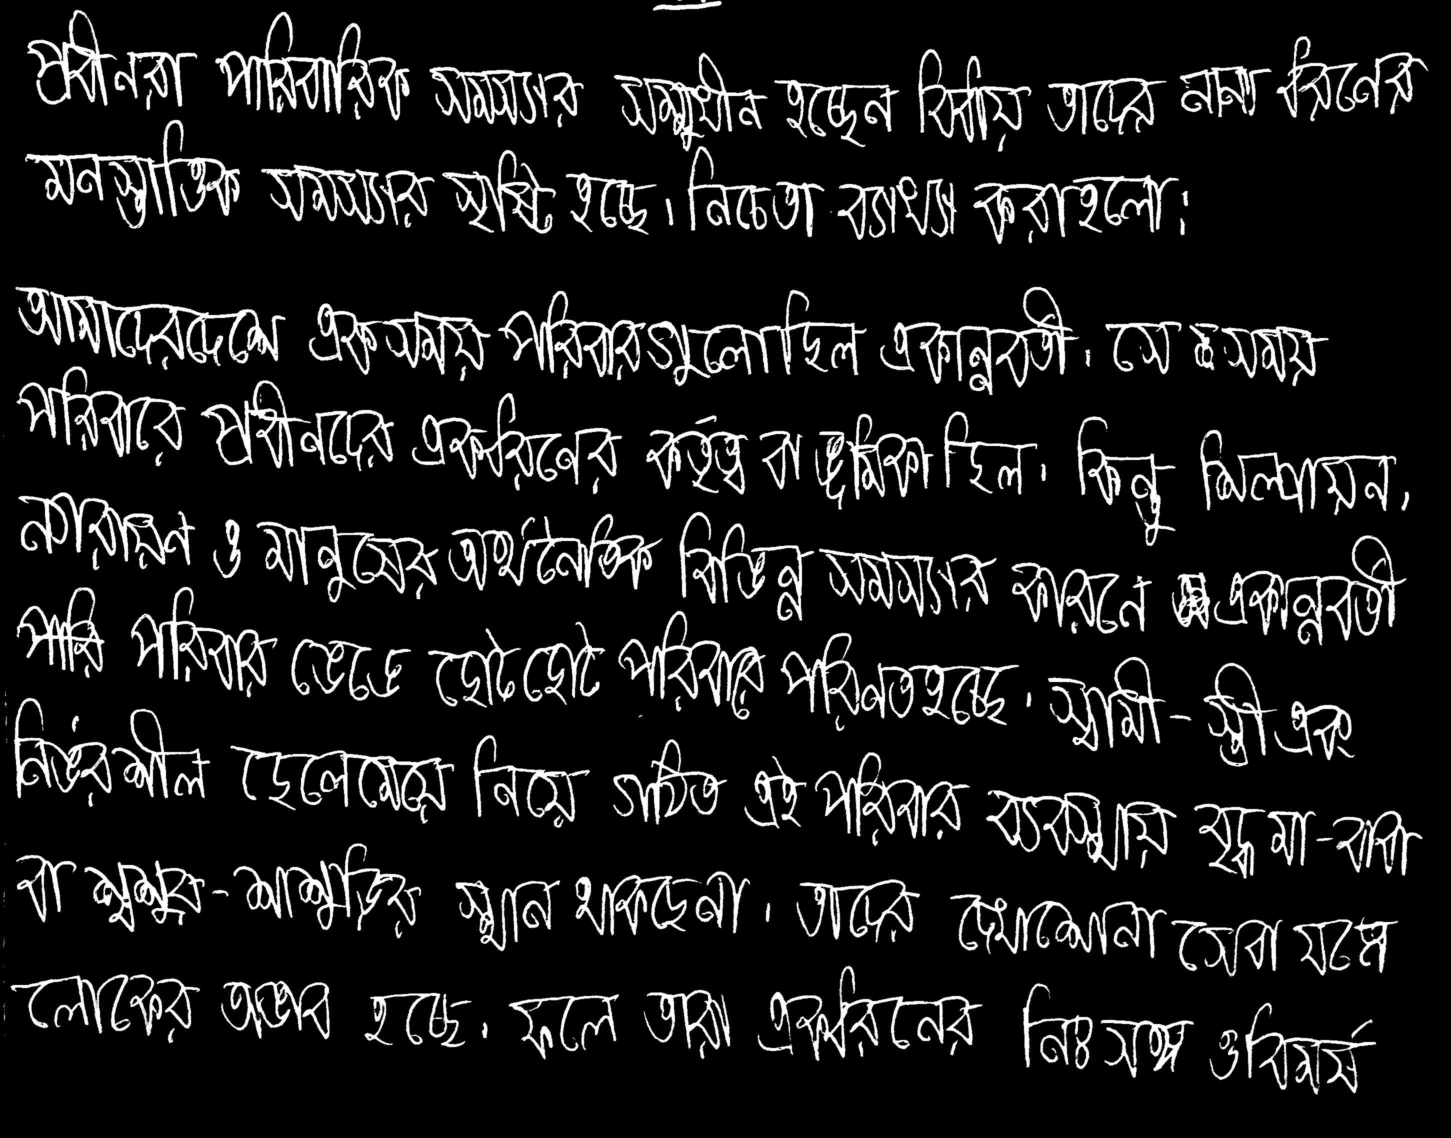 প্রবীনরা পারিবারিক সমস্যার সম্মুখীন হচ্ছেন বিধায় তাদের নানা ধরনের
মনস্তাত্তিক সমস্যার সৃষ্টি হচ্ছে। নিচে তা ব্যাখ্যা করা হলো:
আমাদের দেশে এক সময় পরিবারগুলো ছিল একান্নবর্তী। সে সময়
পরিবারে প্রবীনদের একধরনের কর্তৃত্ব বা ভূমিকা ছিল। কিন্তু শিল্পায়ন,
নগরায়ণ ও মানুষের অর্থনৈতিক বিভিন্ন সমস্যার কারনে একান্নবর্তী
পারি পরিবার ভেঙে ছোট ছোট পরিবারে পরিনত হচ্ছে। স্বামী - স্ত্রী এক
নির্ভরশীল ছেলেমেয়ে নিয়ে গঠিত এই পরিবার ব্যবস্থায় বৃদ্ধ মা - বাবা
বা শ্বশুর - শাশুড়ির স্থান থাকছেনা। তাদের দেখাশোনা সেবা যত্নে
লোকের অভাব হচ্ছে। ফলে তারা একধরিনের নিঃসঙ্গ ও বিমর্ষ